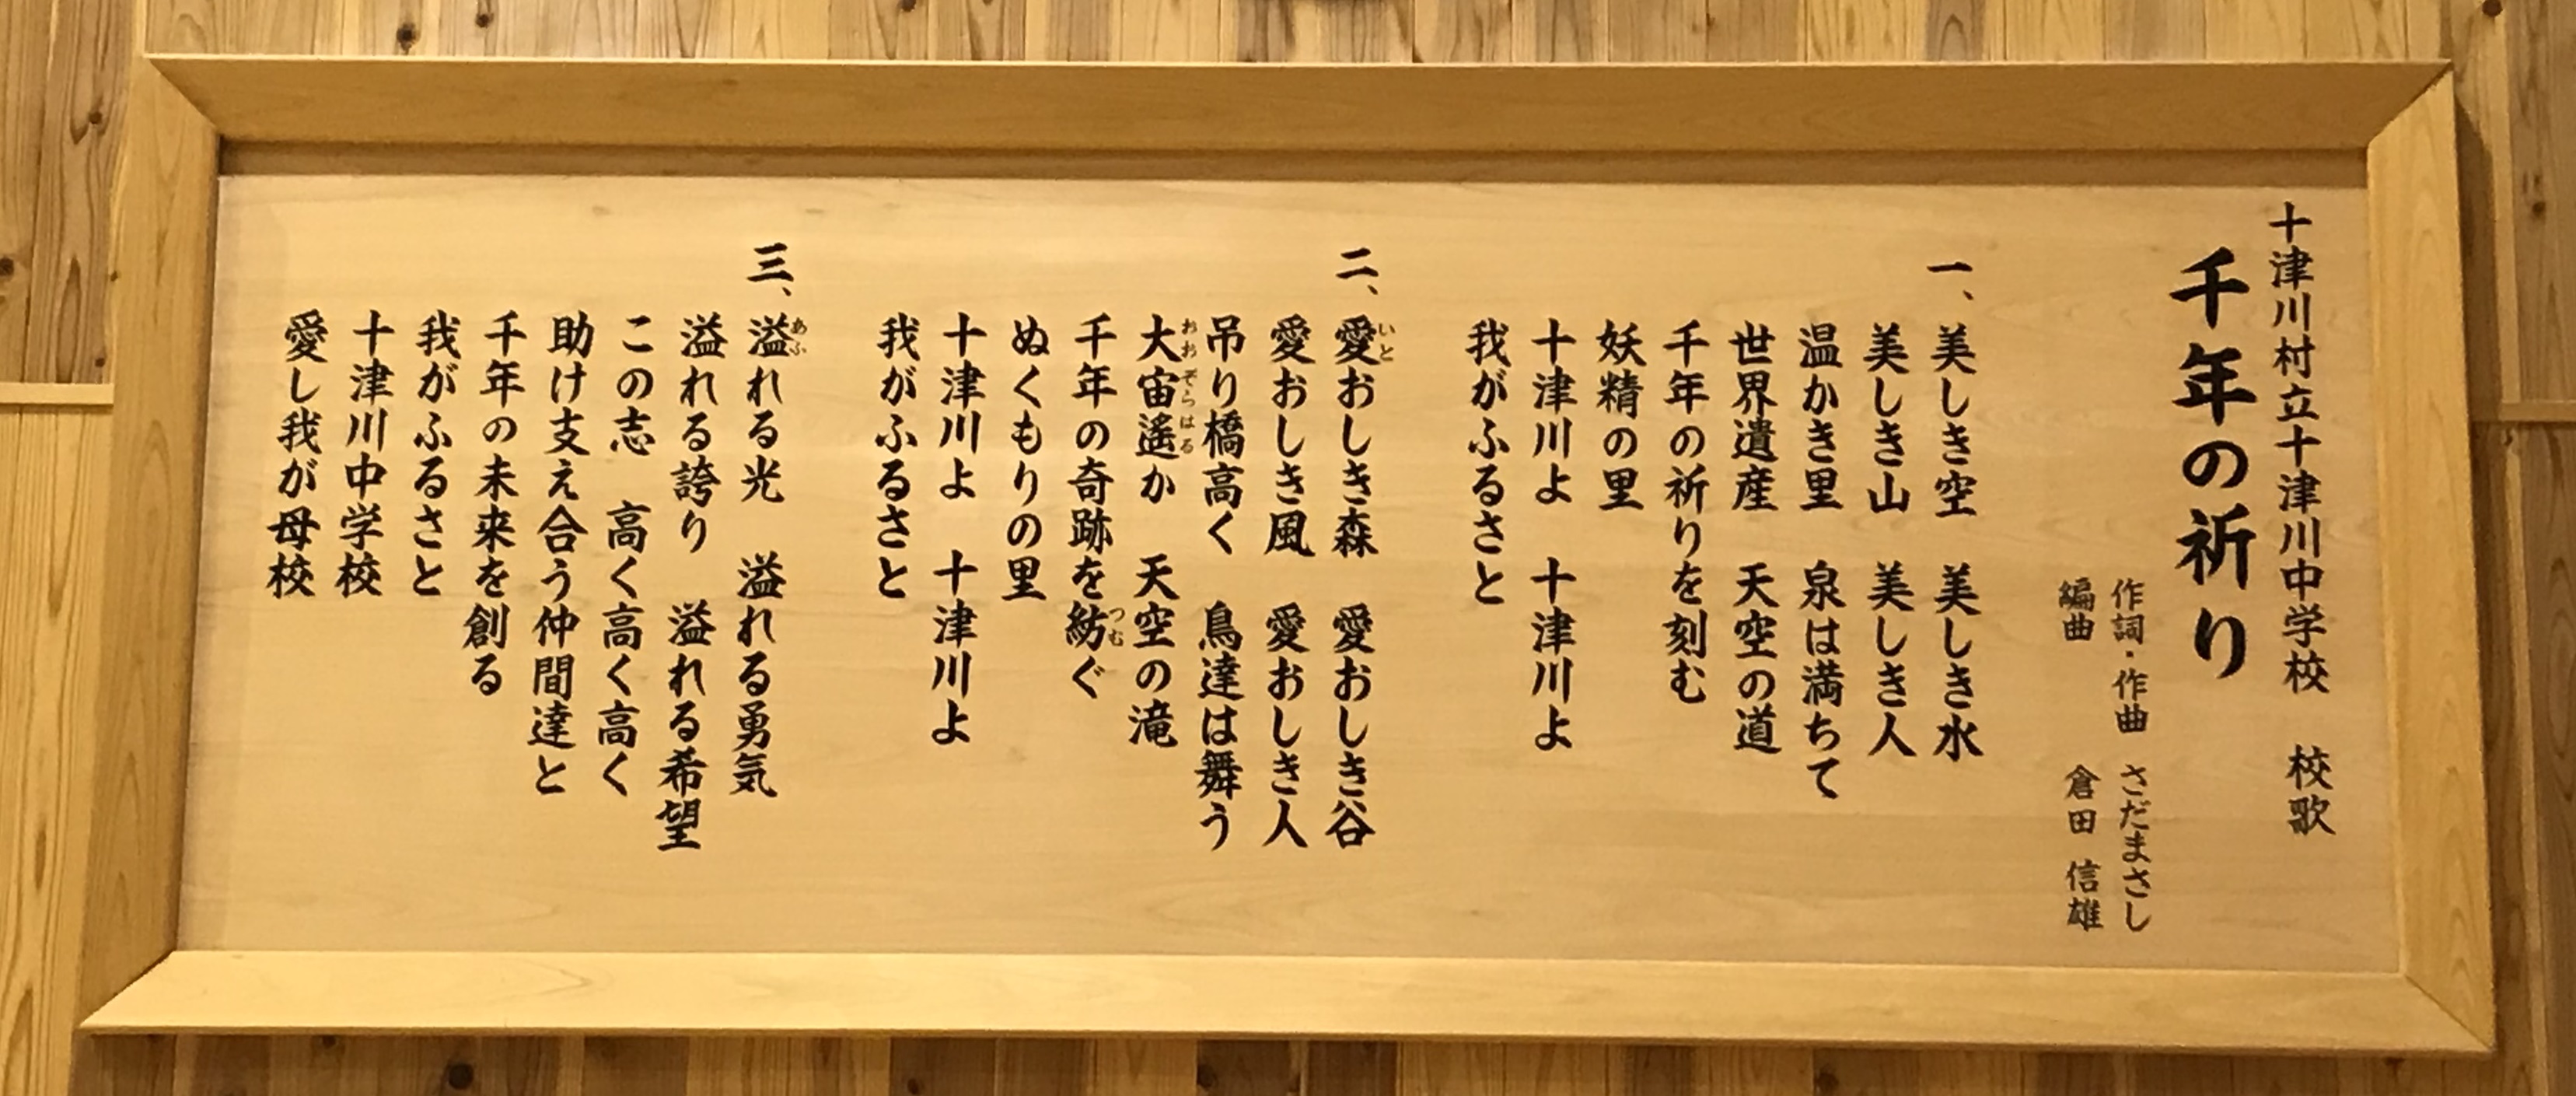 十津川村立十津川中学校　校歌
千年の祈り
作詞・作曲　さだまさし
編曲　倉田　信雄
一、美しき空　美しき水
美しき山　美しき人
温かき里　泉は満ちて
世界遺産　天空の道
千年の祈りを刻む
妖精の里
十津川よ　十津川よ
我がふるさと
二、愛おしき森　愛おしき谷
愛おしき風　愛おしき人
吊り橋高く　鳥達は舞う
大宙遙か　天空の滝
千年の奇跡を紡ぐ
ぬくもりの里
十津川よ　十津川よ
我がふるさと
三、溢れる光　溢れる勇気
溢れる誇り　溢れる希望
この志　高く高く高く
助け支え合う仲間達と
千年の未来を創る
我がふるさと
十津川中学校
愛し我が母校